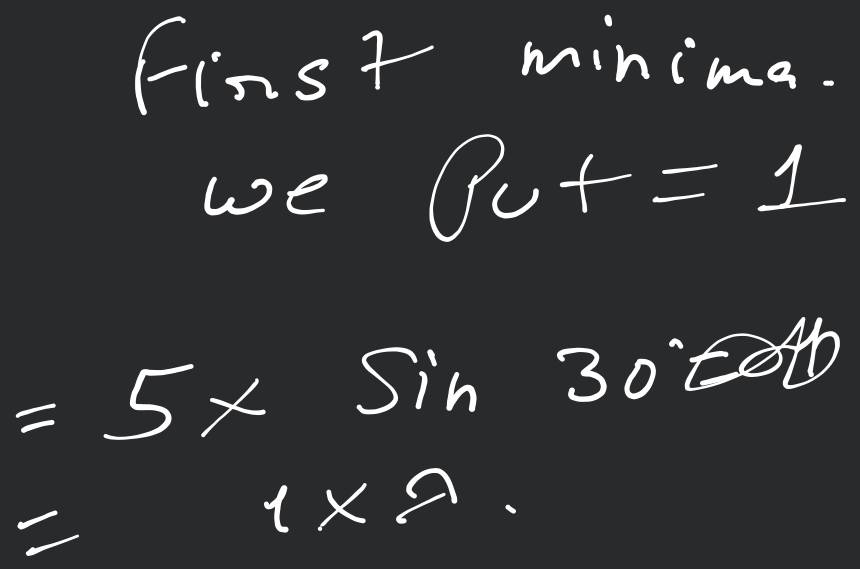 First minima.
we Put = 1
= 5 × Sin 30°
= 1 × λ.